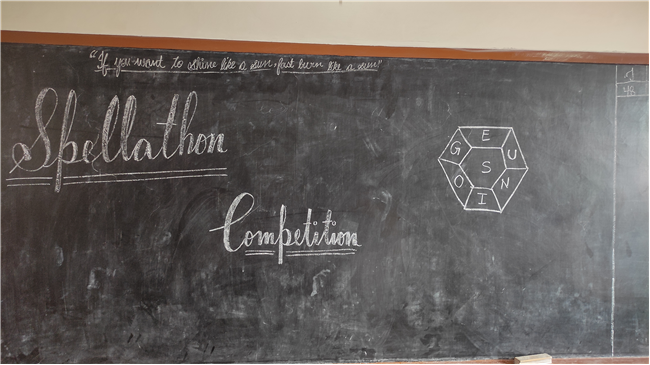 "If you want to shine like a sun, fast burn like a sun"
Spellathon
Competition
E
G U
S
O N
I